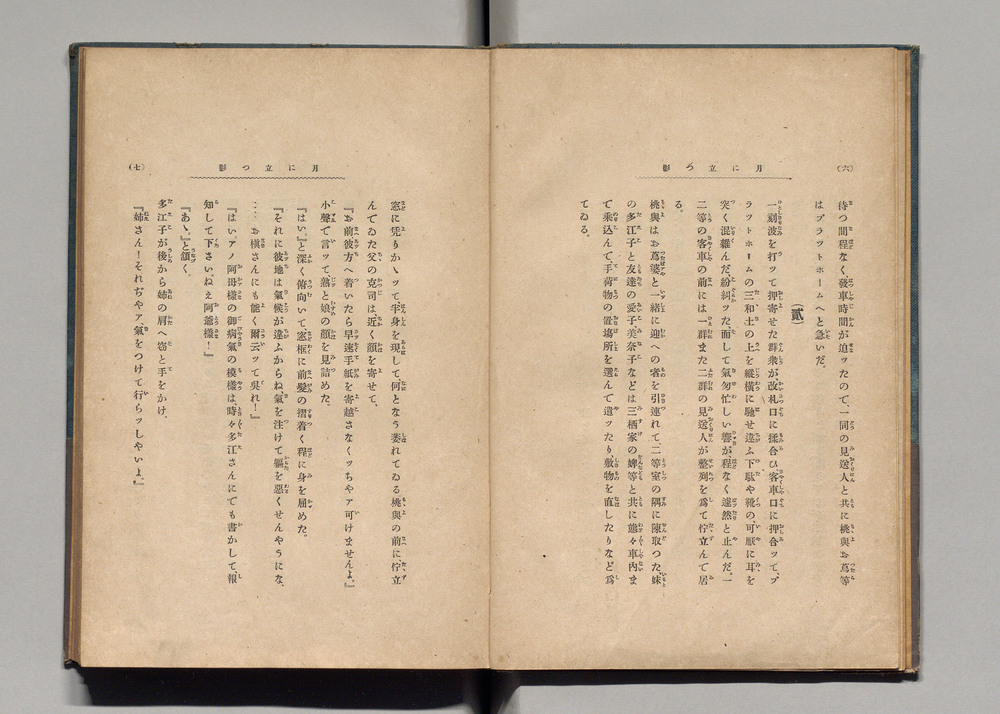 （六）
月に立つ影
待つ間程なく發車時間が迫ッたので、一同の見送人と共に桃與お蔦等
はプラットホームへと急いだ。
（貳）
一刻波を打ッて押寄せた群衆が改札口に揉合ひ客車口に押合ッて、プ
ラットホームの三和土の上を縱橫に馳せ違ふ下駄や靴の可厭に耳を
突く混雜んだ、紛糾ッた而して氣勿忙しい響が、程なく遽然と止んだ。一
二等の客車の前には一群また二群の見送人が整列を爲て佇立んで居
る。
桃與はお蔦婆と一緒に迎への者を引連れて、二等室の隅に陳取つた。妹
の多江子と友達の愛子美奈子などは三栖家の婢等と共に態々車內ま
で乘込んで、手荷物の置塲所を選んで遣ッたり敷物を直したりなど爲
てゐる。
（七）
月に立つ影
窓に凭りかゝッて半身を現して何となう萎れてゐる桃與の前に、佇立
んでゐた父の克司は近く顏を寄せて、
『お前彼方へ着いたら早速手紙を寄越さなくッちやア可けませんよ。』
小聲で言ッて熟と娘の顏を見詰めた。
『はい。』と深く俯向いて窓框に前髮の摺着く程に身を屈めた。
『それに彼地は氣候が違ふからね氣を注けて軀を惡くせんやうにな、
…お槇さんにも能く爾云ッて吳れ！』
『はい。アノ阿母樣の御病氣の模樣は、時々多江さんにでも書かして、報
知して下さい。ねえ阿爺樣！』
『あゝ。』と頷く。
多江子が後から姉の肩へ窃と手をかけ、
『姉さん！それぢやア氣をつけて行らッしやいよ。』